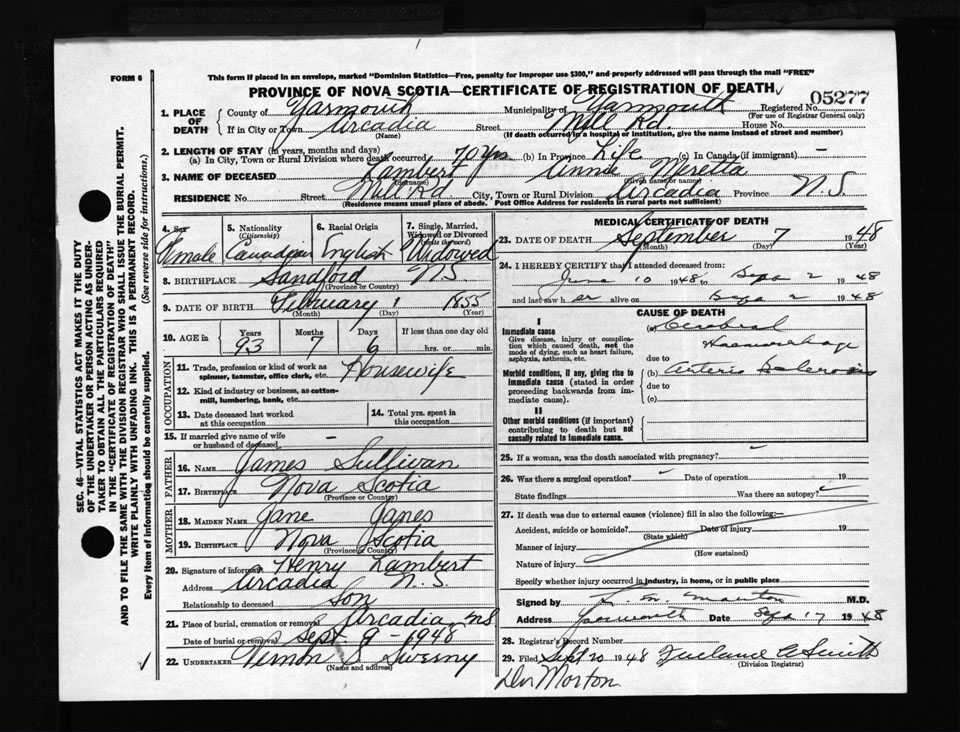 FORM 6
This form if placed in an envelope, marked "Dominion Statistics—Free, penalty for improper use $300," and properly addressed will pass through the mail "FREE"
PROVINCE OF NOVA SCOTIA—CERTIFICATE OF REGISTRATION OF DEATH
1. PLACE OF DEATH
County of Yarmouth Municipality of Yarmouth Registered No. 05277
(For use of Registrar General only)
If in City or Town Arcadia Street Mill Rd. House No.
(Name) (If death occurred in a hospital or institution, give the name instead of street and number)
2. LENGTH OF STAY (in years, months and days)
(a) In City, Town or Rural Division where death occurred 70 yrs (b) In Province Life (c) In Canada (if immigrant) —
3. NAME OF DECEASED Lambert Annie Meretta
(Surname) (Given name or names)
RESIDENCE No. Street Mill Rd City, Town or Rural Division Arcadia Province N.S.
(Residence means usual place of abode. Post Office Address for residents in rural parts not sufficient)
4. Sex
Female
5. Nationality (Citizenship)
Canadian
6. Racial Origin
English
7. Single, Married, Widowed or Divorced (write the word)
Widowed
8. BIRTHPLACE Sandford N.S.
(Province or Country)
9. DATE OF BIRTH February 1 1855
(Month) (Day) (Year)
10. AGE in Years Months Days If less than one day old
93 7 6 hrs. or min.
OCCUPATION
11. Trade, profession or kind of work as spinner, teamster, office clerk, etc. Housewife
12. Kind of industry or business, as cotton-mill, lumbering, bank, etc.
13. Date deceased last worked at this occupation
14. Total yrs. spent in this occupation
15. If married give name of wife or husband of deceased —
FATHER
16. NAME James Sullivan
17. Birthplace Nova Scotia
(Province or Country)
MOTHER
18. MAIDEN NAME Jane Janes
19. BIRTHPLACE Nova Scotia
(Province or Country)
20. Signature of informant Henry Lambert
Address Arcadia N.S.
Relationship to deceased Son
21. Place of burial, cremation or removal Arcadia, NS
Date of burial or removal Sept. 9 - 1948
22. UNDERTAKER Vernon S Sweeny
(Name and address)
MEDICAL CERTIFICATE OF DEATH
23. DATE OF DEATH September 7 1948
(Month) (Day) (Year)
24. I HEREBY CERTIFY that I attended deceased from:
June 10 1948 to Sept 2 1948
and last saw her alive on Sept 2 1948
CAUSE OF DEATH
I
Immediate cause
Give disease, injury or complication which caused death, not the mode of dying, such as heart failure, asphyxia, asthenia, etc.
(a) Cerebral Haemorrhage
due to
Morbid conditions, if any, giving rise to immediate cause (stated in order proceeding backwards from immediate cause).
(b) Arterio Sclerosis
due to
(c)
II
Other morbid conditions (if important) contributing to death but not causally related to immediate cause.
25. If a woman, was the death associated with pregnancy?
26. Was there a surgical operation? Date of operation 19
State findings Was there an autopsy?
27. If death was due to external causes (violence) fill in also the following:—
Accident, suicide or homicide? Date of injury 19
(State which)
Manner of injury
(How sustained)
Nature of injury
Specify whether injury occurred in industry, in home, or in public place
Signed by M.D.
Address Yarmouth Date Sept 17 1948
28. Registrar's Record Number
29. Filed Sept 20 1948 Smith
(Division Registrar)
Dr Morton
SEC. 46—VITAL STATISTICS ACT MAKES IT THE DUTY
OF THE UNDERTAKER OR PERSON ACTING AS UNDER-
TAKER TO OBTAIN ALL THE PARTICULARS REQUIRED
IN THE "CERTIFICATE OF REGISTRATION OF DEATH"
AND TO FILE THE SAME WITH THE DIVISION REGISTRAR WHO SHALL ISSUE THE BURIAL PERMIT.
WRITE PLAINLY WITH UNFADING INK. THIS IS A PERMANENT RECORD.
Every item of information should be carefully supplied. (See reverse side for instructions.)